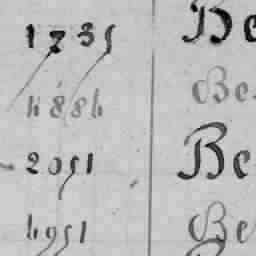 1735 Be
4884 Be
2051 Be
4951 Be